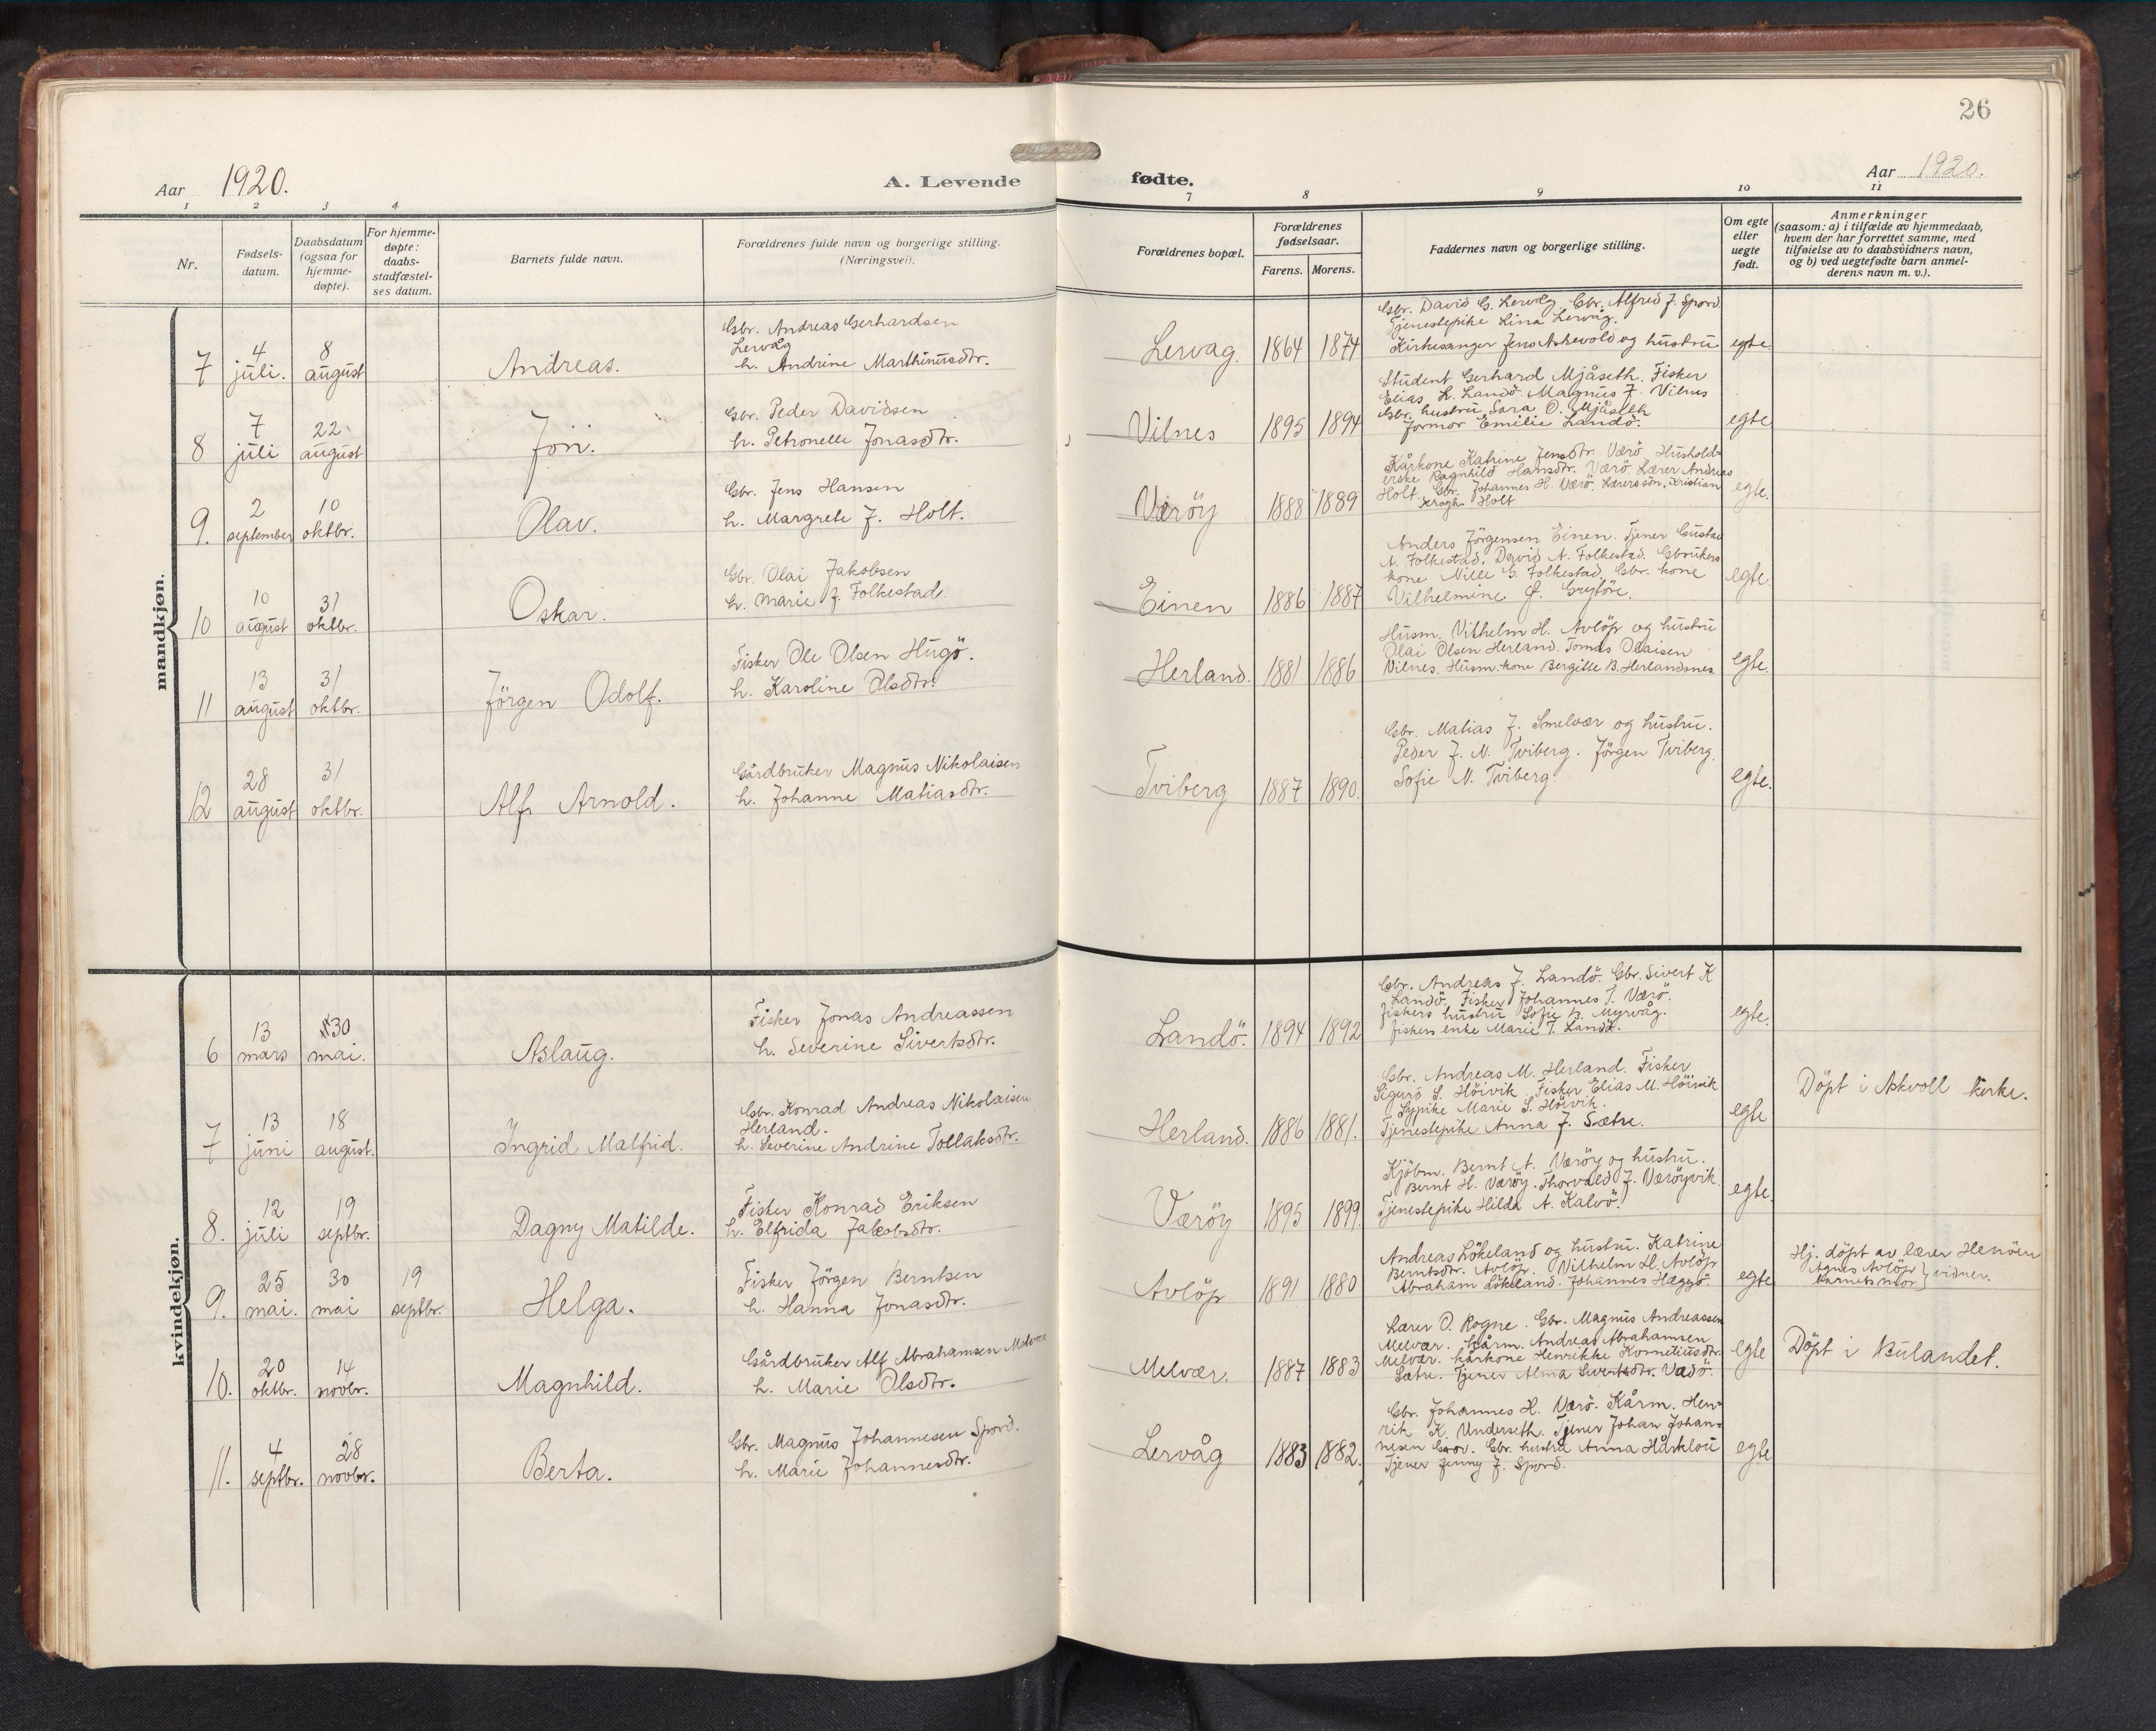 26
Aar 1920.
A. Levende fødte.
Aar 1920.
1 2 3 4 7 8 9 10 11
Nr.
Fødsels-
datum.
Daabsdatum
(ogsaa for
hjemme-
døpte).
For hjemme-
døpte:
daabs-
stadfæstel-
ses datum.
Barnets fulde navn.
Forældrenes fulde navn og borgerlige stilling.
(Næringsvei).
Forældrenes bopæl.
Forældrenes
fødselsaar.
Farens. Morens.
Faddernes navn og borgerlige stilling.
Om egte
eller
uegte
født.
Anmerkninger
(saasom: a) i tilfælde av hjemmedaab,
hvem der har forrettet samme, med
tilføielse av to daabsvidners navn,
og b) ved uegtefødte barn anmel-
derens navn m. v.).
mandkjøn.
7
4
juli.
8
august
Andreas.
Gbr. Andreas Gerhardsen
Lervåg
h. Andrine Marthinusdtr.
Lervag. 1864 1874
Gbr. David G. Lervåg. Gbr. Alfred J. Spord
Tjenestepike Lina Lervåg.
Kirkesanger Jens Askevold og hustru
egte.
8
7
juli
22
august
Jon.
Gbr. Peder Davidsen
h. Petronelle Jonasdtr.
Vilnes 1895 1894
Student Gerhard Mjåseth. Fisker
Elias L. Landö. Magnus J. Vilnes
Gbr. hustru Sara O. Mjåseth
formor Emilie Landö.
egte
9.
2
september
10
oktbr.
Olav.
Gbr. Jens Hansen
h. Margrete J. Holt.
Væröy 1888 1889
Kårkone Katrine Jensdtr. Værö. Hushold-
erske Ragnhild Hansdtr. Værö. Lærer Andreas
Holt. Gbr. Johannes H. Værö. Lærerssön. Kristian
Krogh Holt
egte.
10
10
august
31
oktbr.
Oskar.
Gbr. Olai Jakobsen
h. Marie J. Folkestad.
Einen 1886 1887
Anders Jörgensen Einen. Tjener Gustav
A. Folkestad. David A. Folkestad. Gbrukers
kone Nille G. Folkestad. Gbr. kone
Vilhelmine J. Grytöre.
egte.
11
13
august
31
oktbr.
Jörgen Odolf.
Fisker Ole Olsen Hugö.
h. Karoline Olsdtr.
Herland. 1881 1886
Husm. Vilhelm H. Avlöp og hustru
Olai Olsen Herland. Tomas Olaisen
Vilnes. Husm. kone Bergitte B. Herlandsnes.
egte.
12
28
august
31
oktbr.
Alf Arnold.
Gårdbruker Magnus Nikolaisen
h. Johanne Matiasdtr.
Tviberg 1887 1890.
Gbr. Matias J. Smelvær og hustru.
Peder J. N. Tviberg. Jörgen Tviberg.
Sofie N. Tviberg.
egte.
kvindekjøn.
6
13
mars
30
mai.
Aslaug.
Fisker Jonas Andreassen
h. Severine Sivertsdtr.
Landö. 1894 1892
Gbr. Andreas J. Landö. Gbr. Sivert K
Landö. Fisker Johannes T. Værö.
fiskers hustru Sofie B. Myrvåg.
fiskers enke Marie T. Landö.
egte.
7
13
juni
18
august.
Ingrid Malfrid.
Gbr. Konrad Andreas Nikolaisen
Herland.
h. Severine Andrine Tollaksdtr.
Herland. 1886 1881.
Gbr. Andreas M. Herland. Fisker
Sigurd S. Höivik. Fisker Elias M. Höivik
Sypike Marie S. Höivik.
Tjenestepike Anna J. Sætre.
egte
Döpt i Askvoll kirke.
8.
12
juli
19
septbr.
Dagny Matilde.
Fisker Konrad Eriksen
h. Elfrida Jakobsdtr.
Væröy 1895 1899.
Kjöbm. Bernt A. Væröy og hustru.
Bernt H. Væröy. Thorvald J. Væröyvik.
Tjenestepike Hilda A. Kalvö.
egte.
9.
25
mai.
30
mai
19
septbr.
Helga.
Fisker Jörgen Berntsen
h. Hanna Jonasdtr.
Avlöp 1891 1880
Andreas Lökeland og hustru. Katrine
Berntsdtr. Avlöp. Vilhelm H. Avlöp
Abraham Lökeland. Johannes Hæggö.
egte
Hj. döpt av lærer Henöen
Agnes Avlöp
Barnets mor } vidner.
10.
20
oktbr.
14
novbr.
Magnhild.
Gårdbruker Alf Abrahamsen Melvær
h. Marie Olsdtr.
Melvær. 1887 1883
Lærer O. Rogne. Gbr. Magnus Andreassen
Melvær. Kårm. Andreas Abrahamsen
Melvær. Kårkone Henrikke Korneliusdtr.
Sætre. Tjener Alma Sivertsdtr. Vadö.
egte
Döpt i Bulandet.
11.
4
septbr.
28
novbr.
Berta.
Gbr. Magnus Johannesen Spord.
h. Marie Johannesdtr.
Lervåg 1883 1882.
Gbr. Johannes H. Værö. Kårm. Hen-
rik K. Underseth. Tjener Johan Johan-
nesen. Gbr. hustru Anna Hårklou
Tjener Jenny J. Spord.
egte